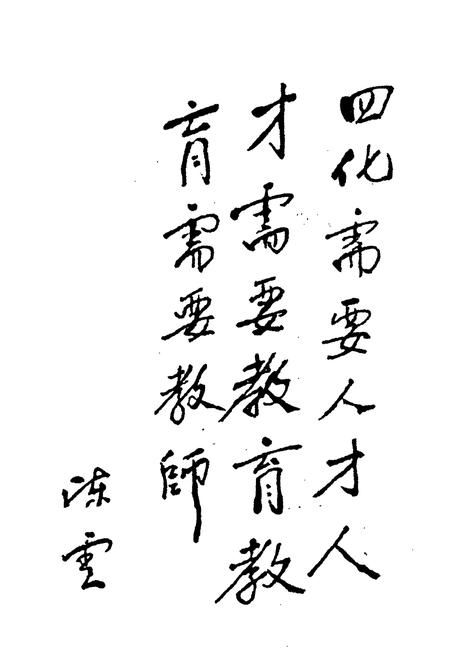 四化需要人才人
才需要教育教
育需要教师
陈雲